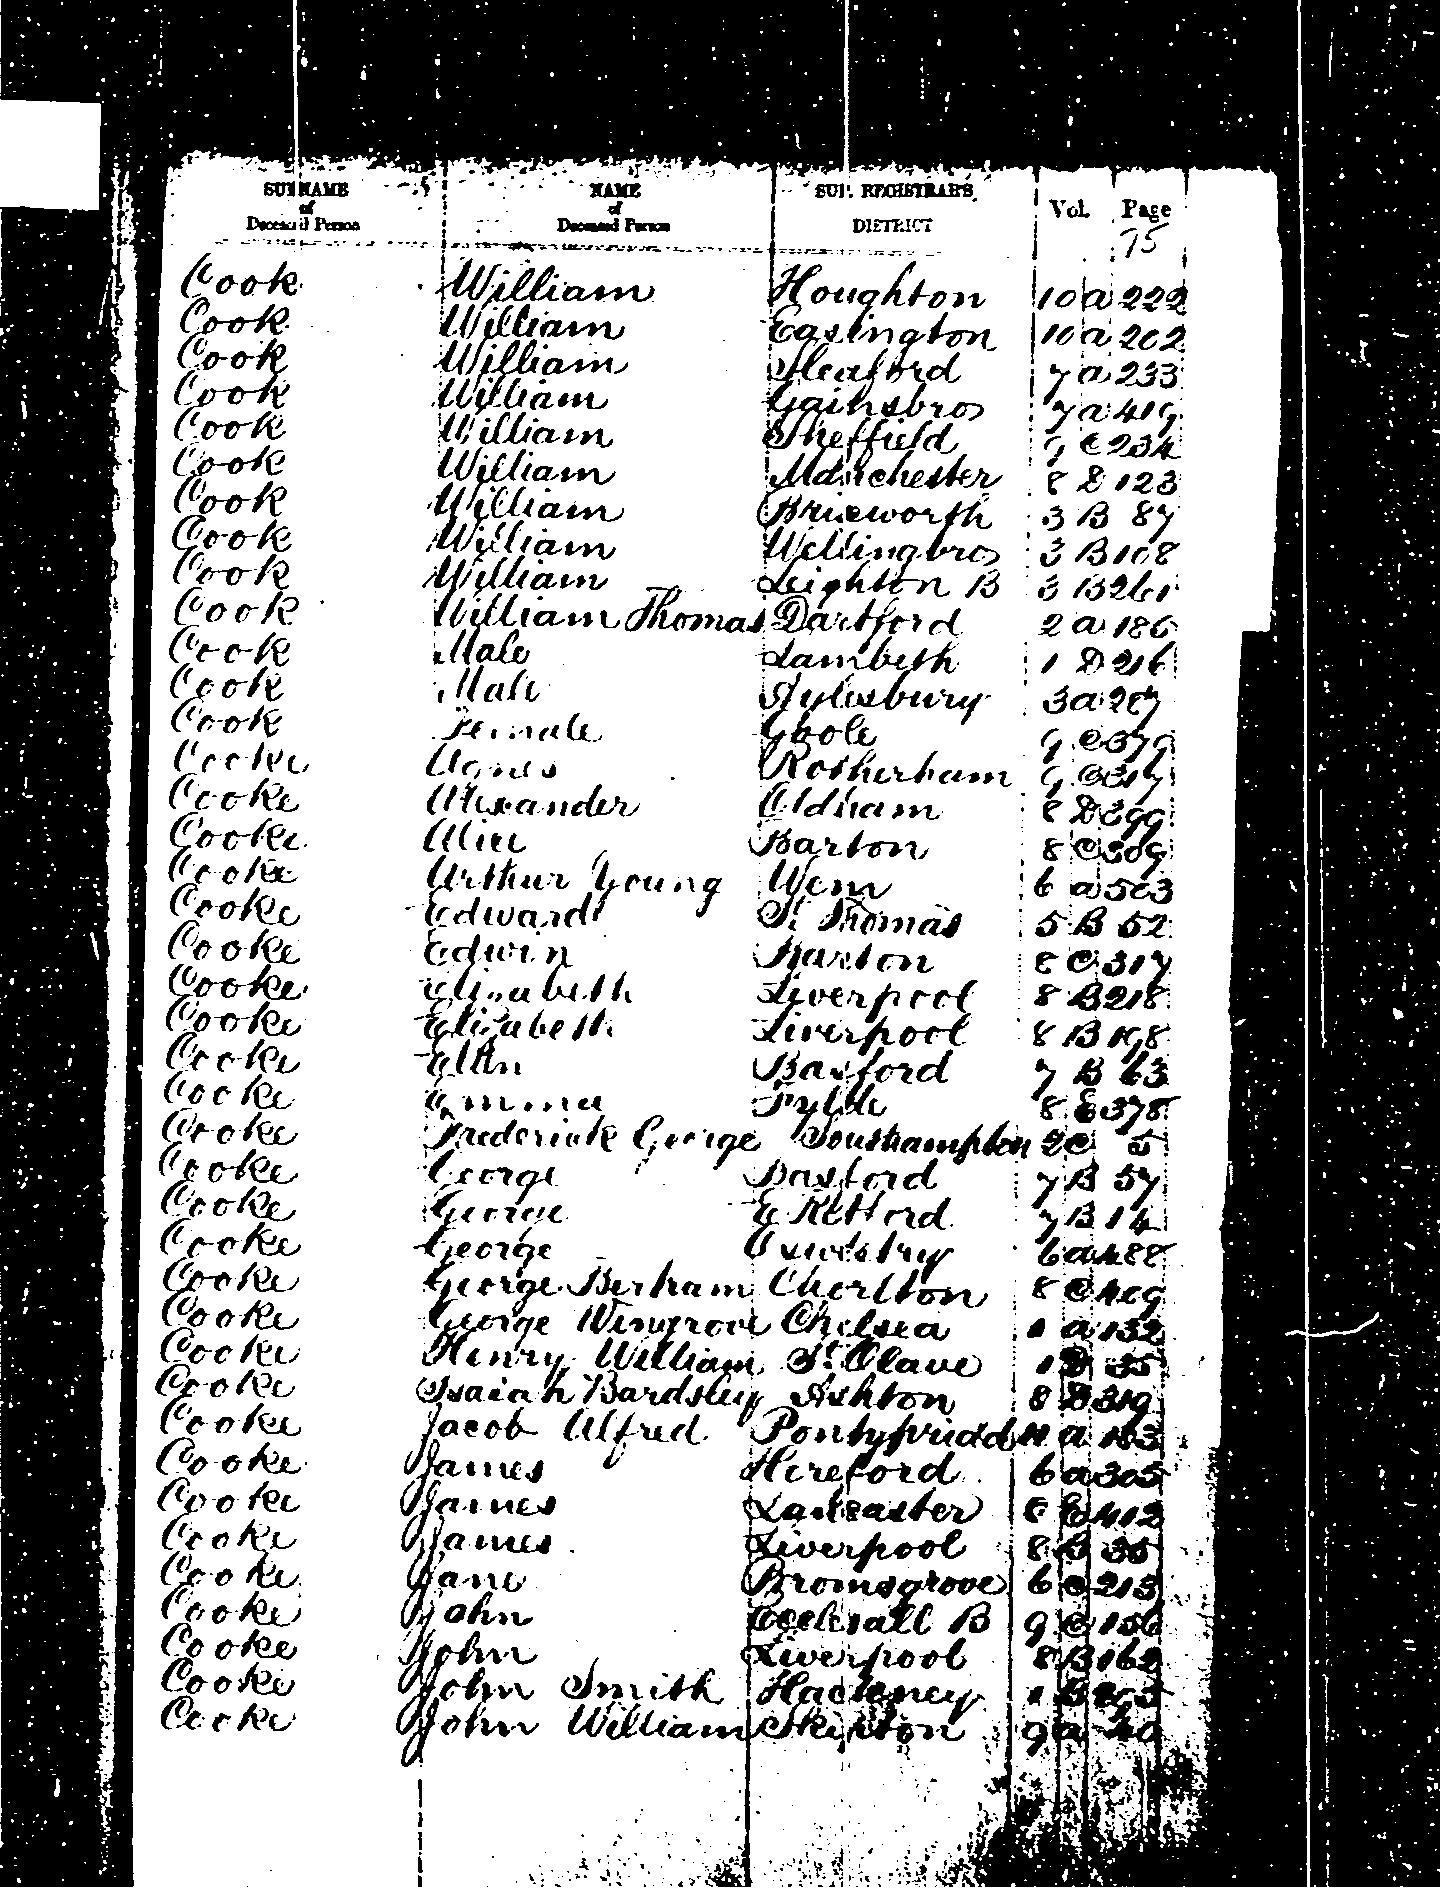 SURNAME of Deceased Person NAME of Deceased Person SUP. REGISTRAR'S DISTRICT Vol. Page
75
Cook William Houghton 10 a 222
Cook William Easington 10 a 202
Cook William Sleaford 7 a 233
Cook William Gainsbro 7 a 419
Cook William Sheffield 9 C 234
Cook William Manchester 8 D 123
Cook William Brixworth 3 B 87
Cook William Wellingbro 3 B 108
Cook William Leighton B 3 B 261
Cook William Thomas Dartford 2 a 186
Cook Male Lambeth 1 D 216
Cook Male Aylesbury 3 a 207
Cook Female Goole 9 C 379
Cooke Agnes Rotherham 9 C 317
Cooke Alexander Oldham 8 D 399
Cooke Alice Barton 8 C 309
Cooke Arthur Young Wem 6 a 503
Cooke Edward St Thomas 5 B 52
Cooke Edwin Barton 8 C 317
Cooke Elizabeth Liverpool 8 B 218
Cooke Elizabeth Liverpool 8 B 198
Cooke Ellen Basford 7 B 63
Cooke Emma Fylde 8 E 378
Cooke Frederick George Southampton 2 C 5
Cooke George Basford 7 B 57
Cooke George E Retford 7 B 14
Cooke George Oswestry 6 a 488
Cooke George Bertram Chorlton 8 C 409
Cooke George Wingrove Chelsea 1 a 132
Cooke Henry William St Olave 1 D 35
Cooke Isaiah Bardsley Ashton 8 D 319
Cooke Jacob Alfred Pontypridd 11 a 183
Cooke James Hereford 6 a 305
Cooke James Lancaster 8 E 412
Cooke James Liverpool 8 B 35
Cooke Jane Bromsgrove 6 C 213
Cooke John Ecclesall B 9 C 156
Cooke John Liverpool 8 B 162
Cooke John Smith Hackney 1 B
Cooke John William Skipton 9 a 40